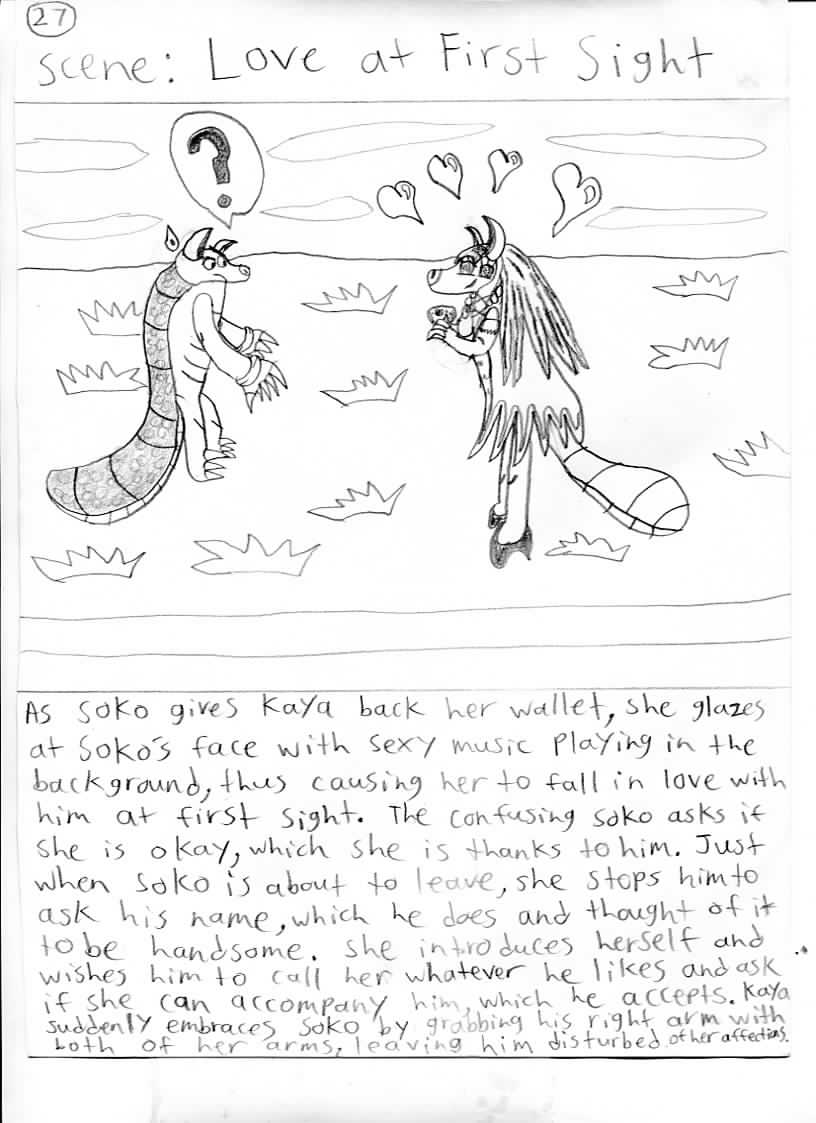 27
Scene: Love at First Sight
?
As Soko gives Kaya back her wallet, she glazes
at Soko's face with sexy music playing in the
background, thus causing her to fall in love with
him at first sight. The confusing Soko asks if
she is okay, which she is thanks to him. Just
when Soko is about to leave, she stops him to
ask his name, which he does and thought of it
to be handsome. She introduces herself and
wishes him to call her whatever he likes and ask
if she can accompany him, which he accepts. Kaya
suddenly embraces Soko by grabbing his right arm with
both of her arms, leaving him disturbed of her affections.